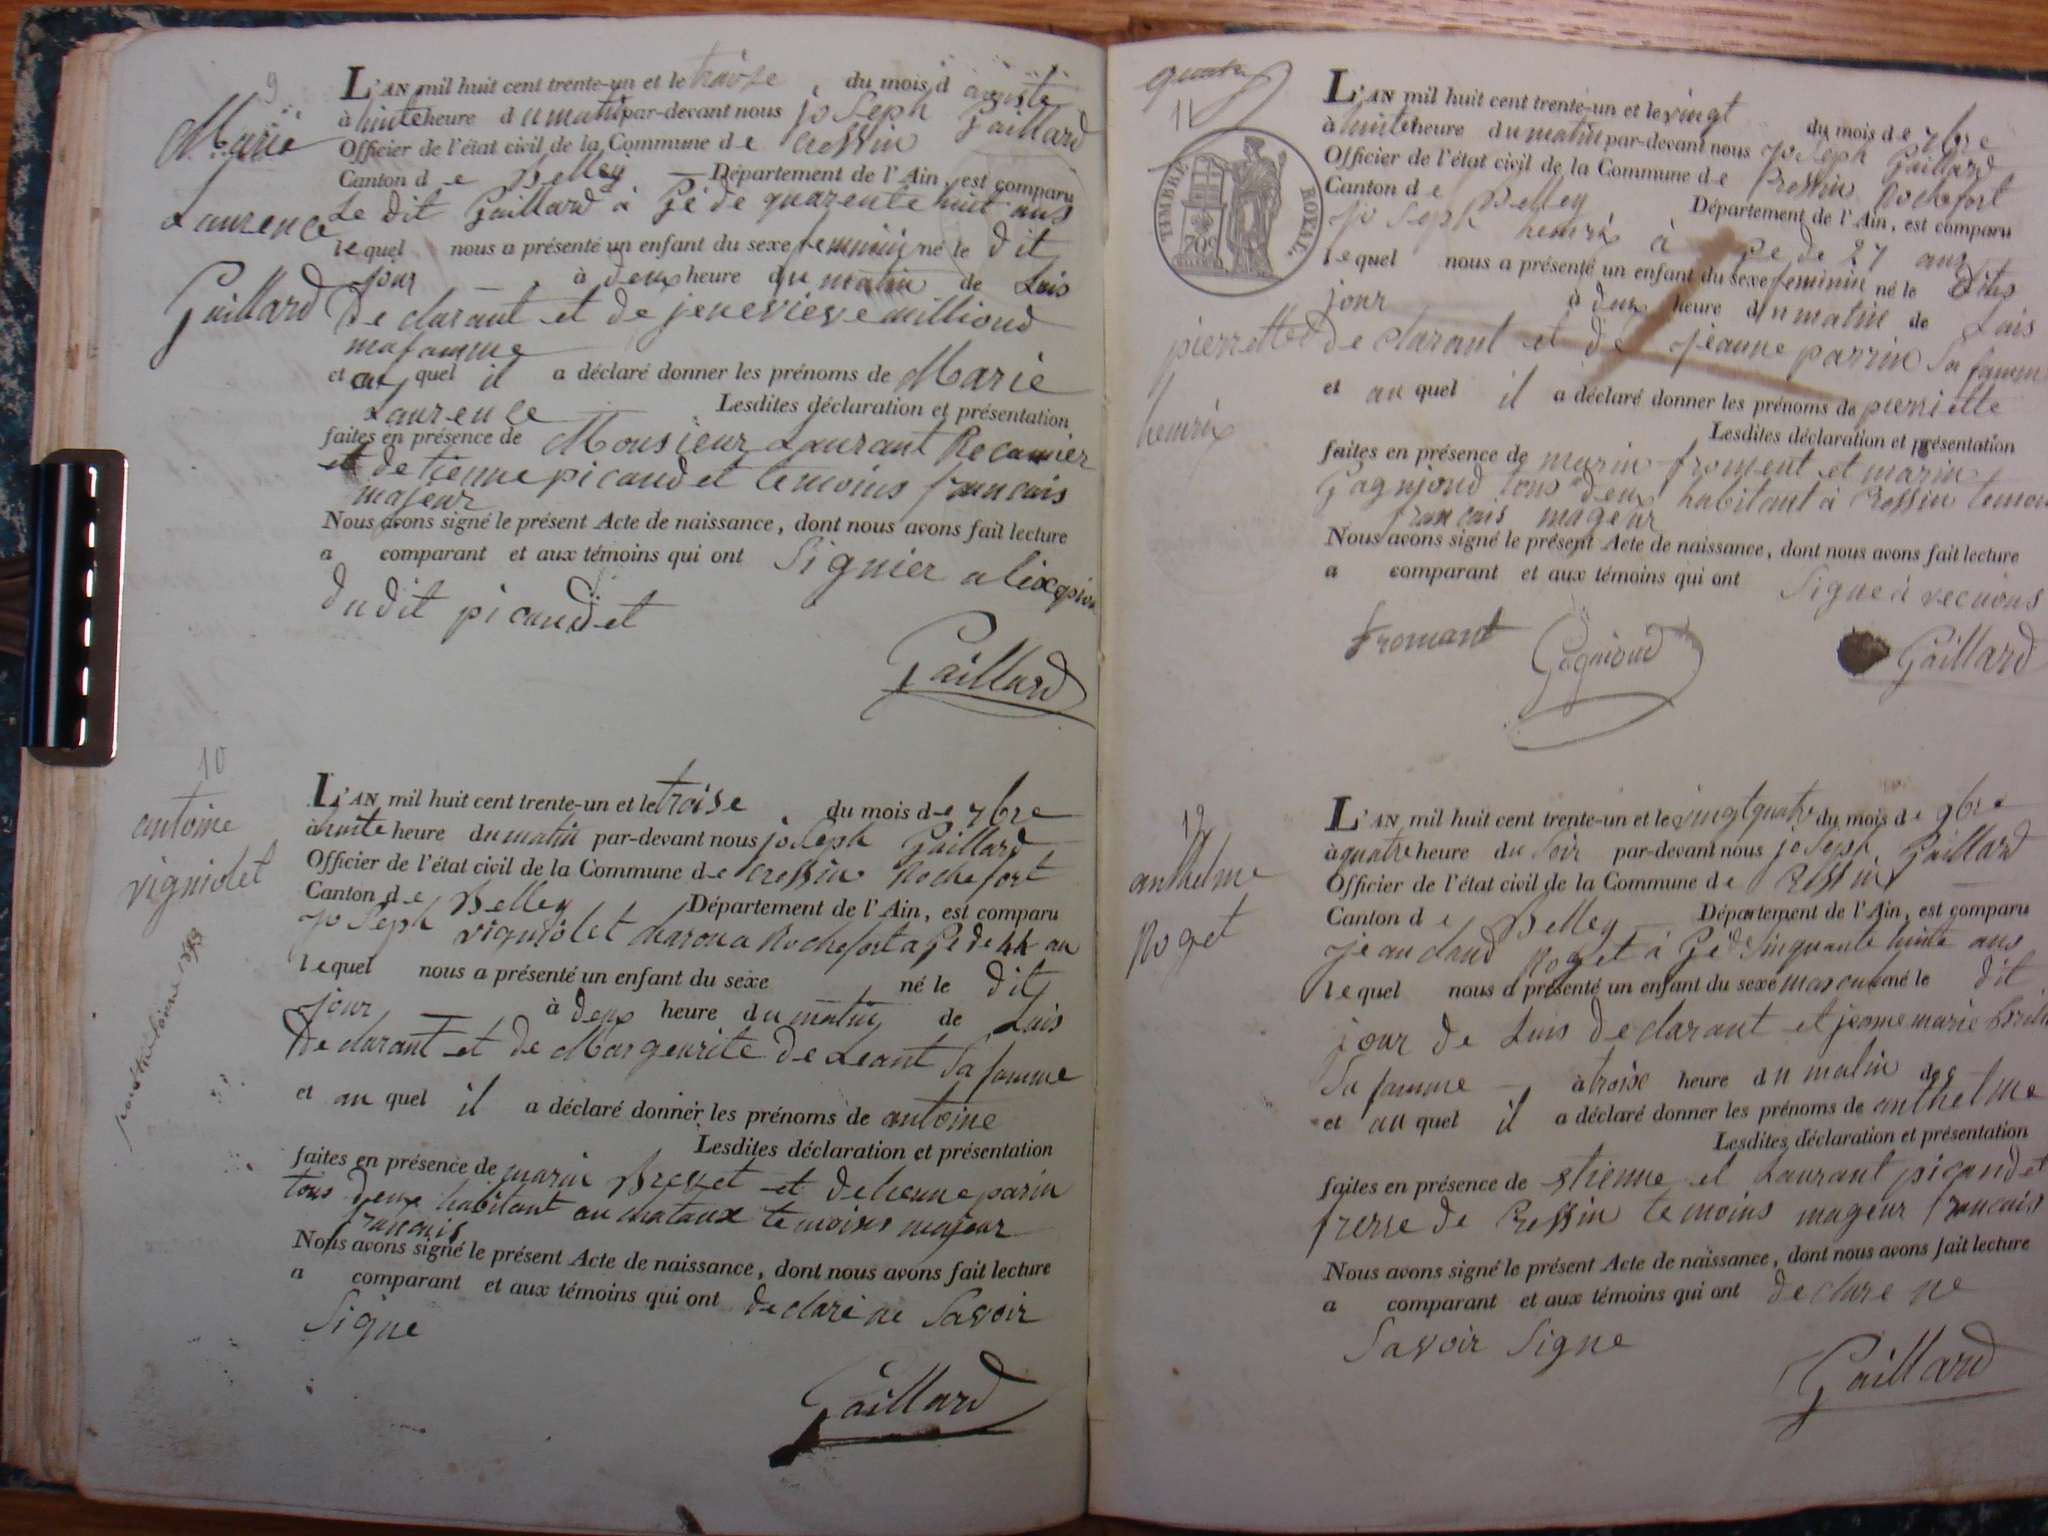 9
Marie
Laurence
Gaillard
L'AN mil huit cent trente-un et le troise du mois d auguste
à huite heure du matin par-devant nous joseph Gaillard
Officier de l'état civil de la Commune de Cressin
Canton de Belley Département de l'Ain, est comparu
Le dit Gaillard à Gé de quarente huit ans
lequel nous a présenté un enfant du sexe feminin né le dit
jour à deux heure du matin de Luis
De clarant et de jenevieve millioud
mafamme
et au quel il a déclaré donner les prénoms de Marie
Laurence Lesdites déclaration et présentation
faites en présence de Monsieur Laurant Recamier
et de tienne picaudet temoins francais
majeur
Nous avons signé le présent Acte de naissance, dont nous avons fait lecture
a comparant et aux témoins qui ont Signier alixqion
du dit picaudet
Gaillard
10
antoine
vigniolet
L'AN mil huit cent trente-un et le troise du mois de 7bre
à huite heure du matin par-devant nous joseph Gaillard
Officier de l'état civil de la Commune de Cressin Rochefort
Canton de Belley Département de l'Ain, est comparu
joseph vigniolet charon a Rochefort a Gé de 44 an
lequel nous a présenté un enfant du sexe né le dit
jour à deux heure du matin de Luis
De clarant et de Margeurite De Leant Sa famme
et au quel il a déclaré donner les prénoms de antoine
Lesdites déclaration et présentation
faites en présence de marin Brevet et detienne parin
tous deux habitant au chataux temoins majeur
francais
Nous avons signé le présent Acte de naissance, dont nous avons fait lecture
a comparant et aux témoins qui ont declaré ne Savoir
Signe
Gaillard
quatre
11
TIMBRE ROYAL
70c
pierrette
henrix
L'AN mil huit cent trente-un et le vingt du mois de 7bre
à huite heure du matin par-devant nous joseph Gaillard
Officier de l'état civil de la Commune de Cressin Rochefort
Canton de Belley Département de l'Ain, est comparu
joseph henrix à Gé de 27 ans
lequel nous a présenté un enfant du sexe feminin né le dits
jour à deux heure du matin de Luis
De clarant et de jeanne parrin Sa famme
et au quel il a déclaré donner les prénoms de pierriette
Lesdites déclaration et présentation
faites en présence de marin froment et marin
Gagnioud tous deux habitant à Cressin temoin
francais mageur
Nous avons signé le présent Acte de naissance, dont nous avons fait lecture
a comparant et aux témoins qui ont Signe à vecnous
Fromant Gognioud Gaillard
12
anthelme
Roget
L'AN mil huit cent trente-un et le vingtquatre du mois de 9bre
à quatre heure du Soir par-devant nous joseph Gaillard
Officier de l'état civil de la Commune de Cressin
Canton de Belley Département de l'Ain, est comparu
jeanclaud Roget à Gé de Sinquante huite ans
lequel nous a présenté un enfant du sexe masculin né le dit
jour de Luis De clarant et jeanne marie
Sa famme à troise heure du matin de
et au quel il a déclaré donner les prénoms de anthelme
Lesdites déclaration et présentation
faites en présence de Etienne et Laurant picaudet
frerre de Cressin temoins mageur francais
Nous avons signé le présent Acte de naissance, dont nous avons fait lecture
a comparant et aux témoins qui ont declare ne
Savoir Signe
Gaillard